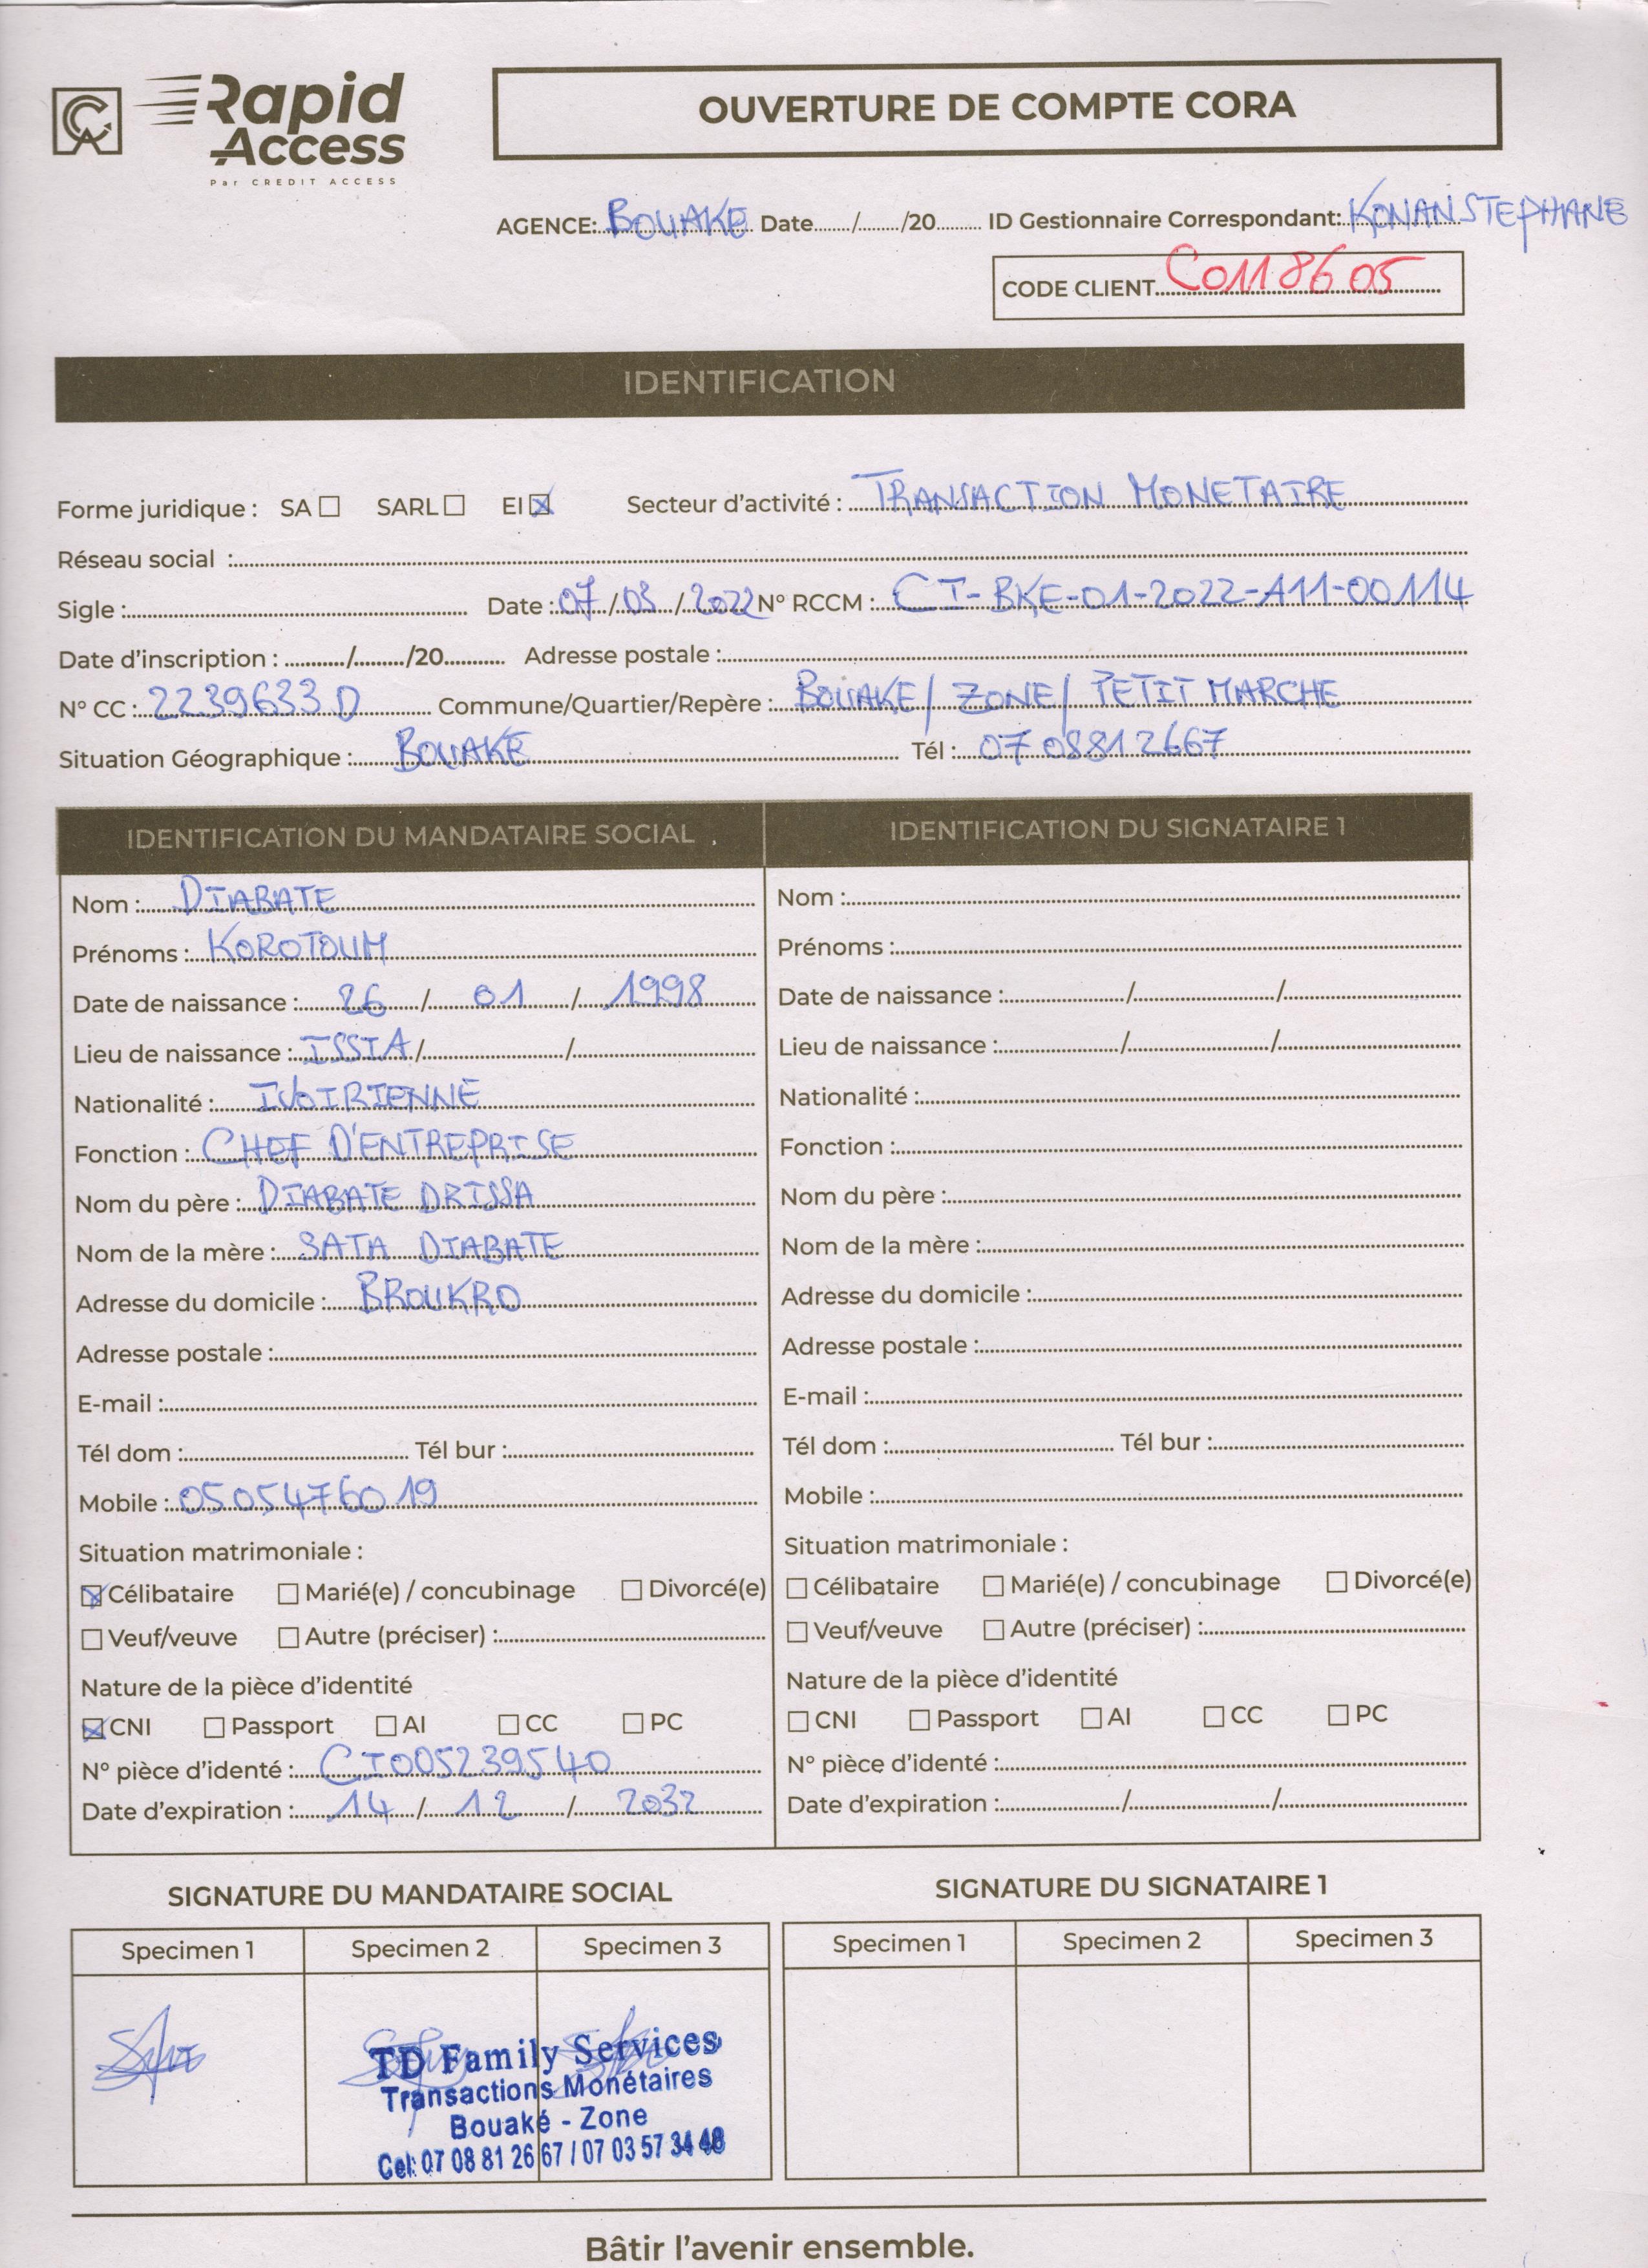 CA Rapid Access
Par CREDIT ACCESS
OUVERTURE DE COMPTE CORA
AGENCE: BOUAKE Date......./......../20.......... ID Gestionnaire Correspondant: KONAN STEPHANE
CODE CLIENT C0118605
IDENTIFICATION
Forme juridique : SA ☐ SARL ☐ EI ☒ Secteur d'activité : TRANSACTION MONETAIRE
Réseau social :
Sigle : Date : 07 / 03 / 2022 N° RCCM : CI-BKE-01-2022-A11-00114
Date d'inscription : ........../........./20........... Adresse postale :
N° CC : 2239633 D Commune/Quartier/Repère : BOUAKE/ ZONE/ PETIT MARCHE
Situation Géographique : BOUAKE Tél : 07 08812667
IDENTIFICATION DU MANDATAIRE SOCIAL
Nom : DIABATE
Prénoms : KOROTOUM
Date de naissance : 26 / 01 / 1998
Lieu de naissance : ISSIA / /
Nationalité : IVOIRIENNE
Fonction : CHEF D'ENTREPRISE
Nom du père : DIABATE DRISSA
Nom de la mère : SATA DIABATE
Adresse du domicile : BROUKRO
Adresse postale :
E-mail :
Tél dom : Tél bur :
Mobile : 0505476019
Situation matrimoniale :
☒ Célibataire ☐ Marié(e) / concubinage ☐ Divorcé(e)
☐ Veuf/veuve ☐ Autre (préciser) :
Nature de la pièce d'identité
☒ CNI ☐ Passport ☐ AI ☐ CC ☐ PC
N° pièce d'identé : CI005239540
Date d'expiration : 14 / 12 / 2032
IDENTIFICATION DU SIGNATAIRE 1
Nom :
Prénoms :
Date de naissance : / /
Lieu de naissance : / /
Nationalité :
Fonction :
Nom du père :
Nom de la mère :
Adresse du domicile :
Adresse postale :
E-mail :
Tél dom : Tél bur :
Mobile :
Situation matrimoniale :
☐ Célibataire ☐ Marié(e) / concubinage ☐ Divorcé(e)
☐ Veuf/veuve ☐ Autre (préciser) :
Nature de la pièce d'identité
☐ CNI ☐ Passport ☐ AI ☐ CC ☐ PC
N° pièce d'identé :
Date d'expiration : / /
SIGNATURE DU MANDATAIRE SOCIAL
Specimen 1 Specimen 2 Specimen 3
TD Family Services
Transactions Monétaires
Bouaké - Zone
Cel: 07 08 81 26 67 / 07 03 57 34 48
SIGNATURE DU SIGNATAIRE 1
Specimen 1 Specimen 2 Specimen 3
Bâtir l'avenir ensemble.